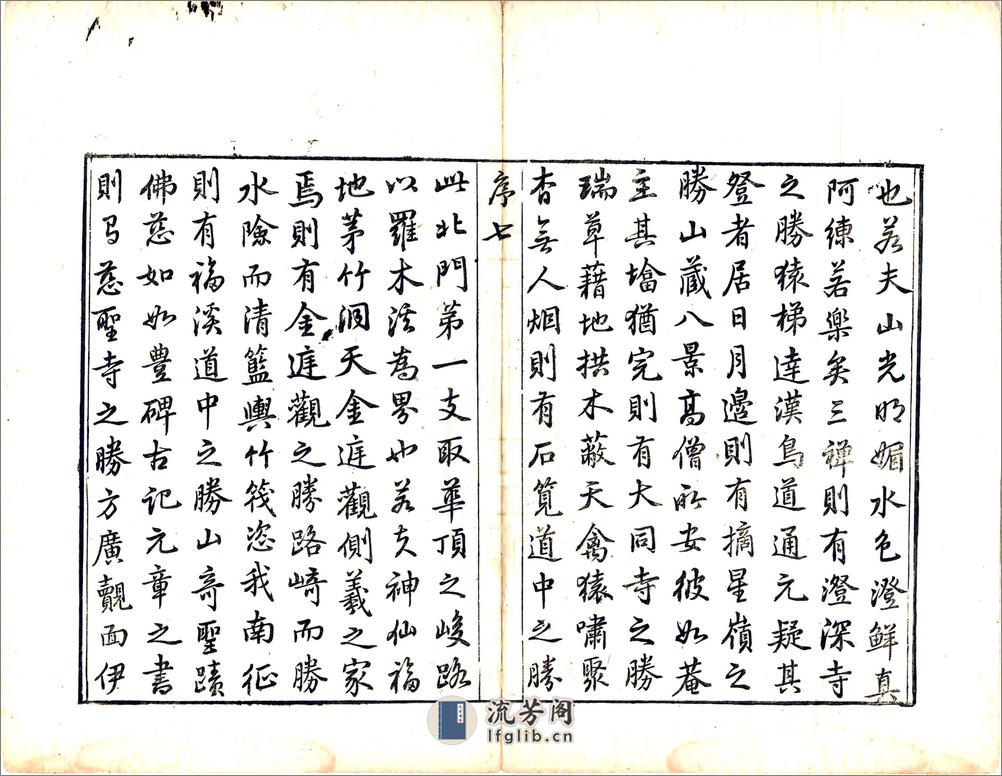 也若夫山光明媚水色澄鮮真
阿練若樂矣三禅則有澄深寺
之勝猿梯達漢鳥道通元疑其
登者居日月邊則有摘星嶺之
勝山藏八景高僧所安彼如菴
主其墖猶完則有大同寺之勝
瑞草藉地拱木蔽天禽猿嘯聚
杳無人烟則有石筧道中之勝
序七
此北門第一支取華頂之峻路
以羅木溪為界也若夫神仙福
地茅竹洞天金庭觀側羲之家
焉則有金庭觀之勝路崎而勝
水險而清籃輿竹筏恣我南征
則有福溪道中之勝山奇聖蹟
佛慈如如豐碑古記元章之書
則為慈聖寺之勝方廣覿面伊
流芳阁
lfglib.cn